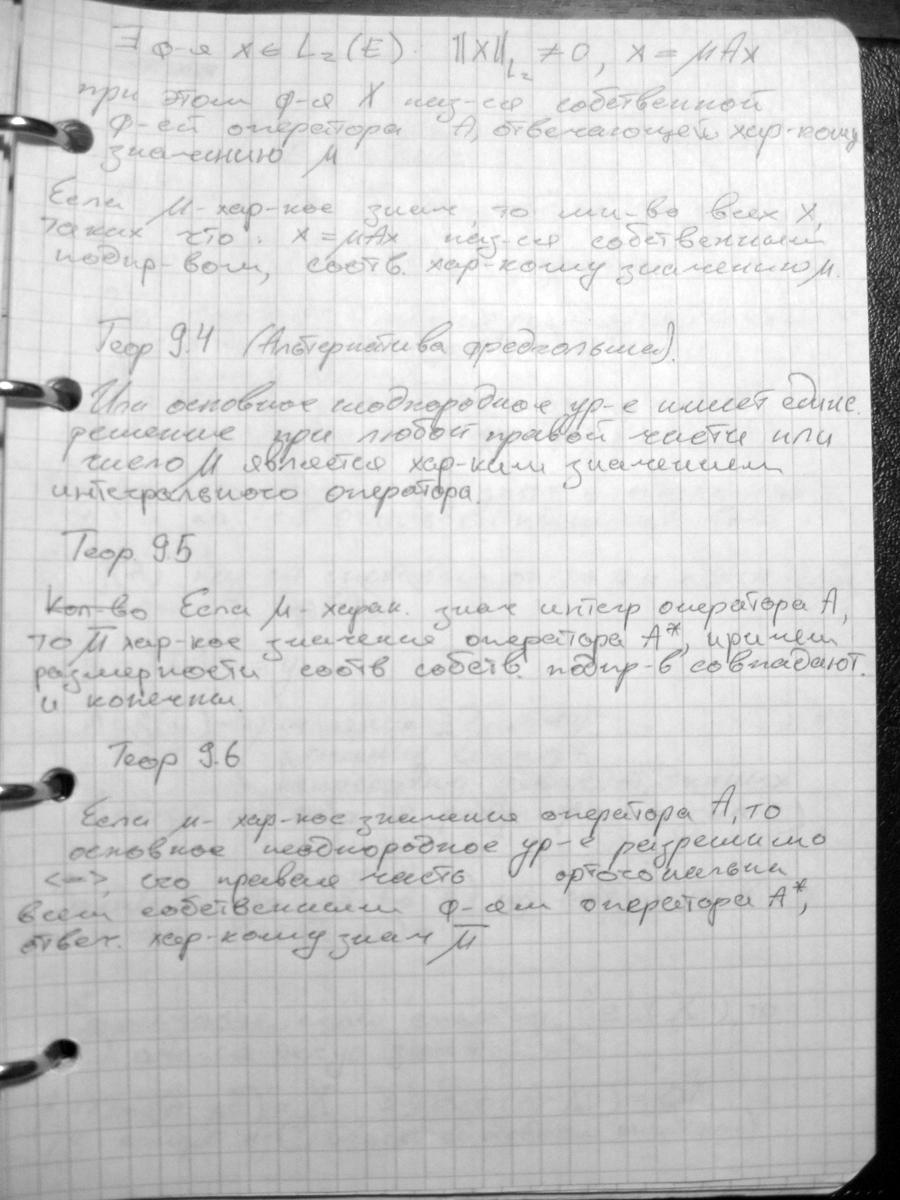 ∃ ф-я x ∈ L₂(E). ‖x‖_L₂ ≠ 0, x = μAx
при этом ф-я X наз-ся собственной
ф-ей оператора A, отвечающей хар-кому
значению μ
Если μ - хар-кое знач, то мн-во всех X,
таких что: x = μAx наз-ся собственным
подпр-вом, соотв. хар-кому значению μ.
Теор 9.4 (Альтернатива фредгольма).
Или основное неоднородное ур-е имеет единс.
решение при любой правой части или
число μ является хар-ким значением
интегрального оператора.
Теор. 9.5
Кол-во Если μ - харак. знач интегр оператора A,
то μ̅ хар-кое значение оператора A*, причем
размерности соотв собств. подпр-в совпадают.
и конечны.
Теор 9.6
Если μ - хар-кое значение оператора A, то
основное неоднородное ур-е разрешимо
<=>, его правая часть ортогональна
всем собственным ф-ям оператора A*,
отвеч. хар-кому знач μ̅